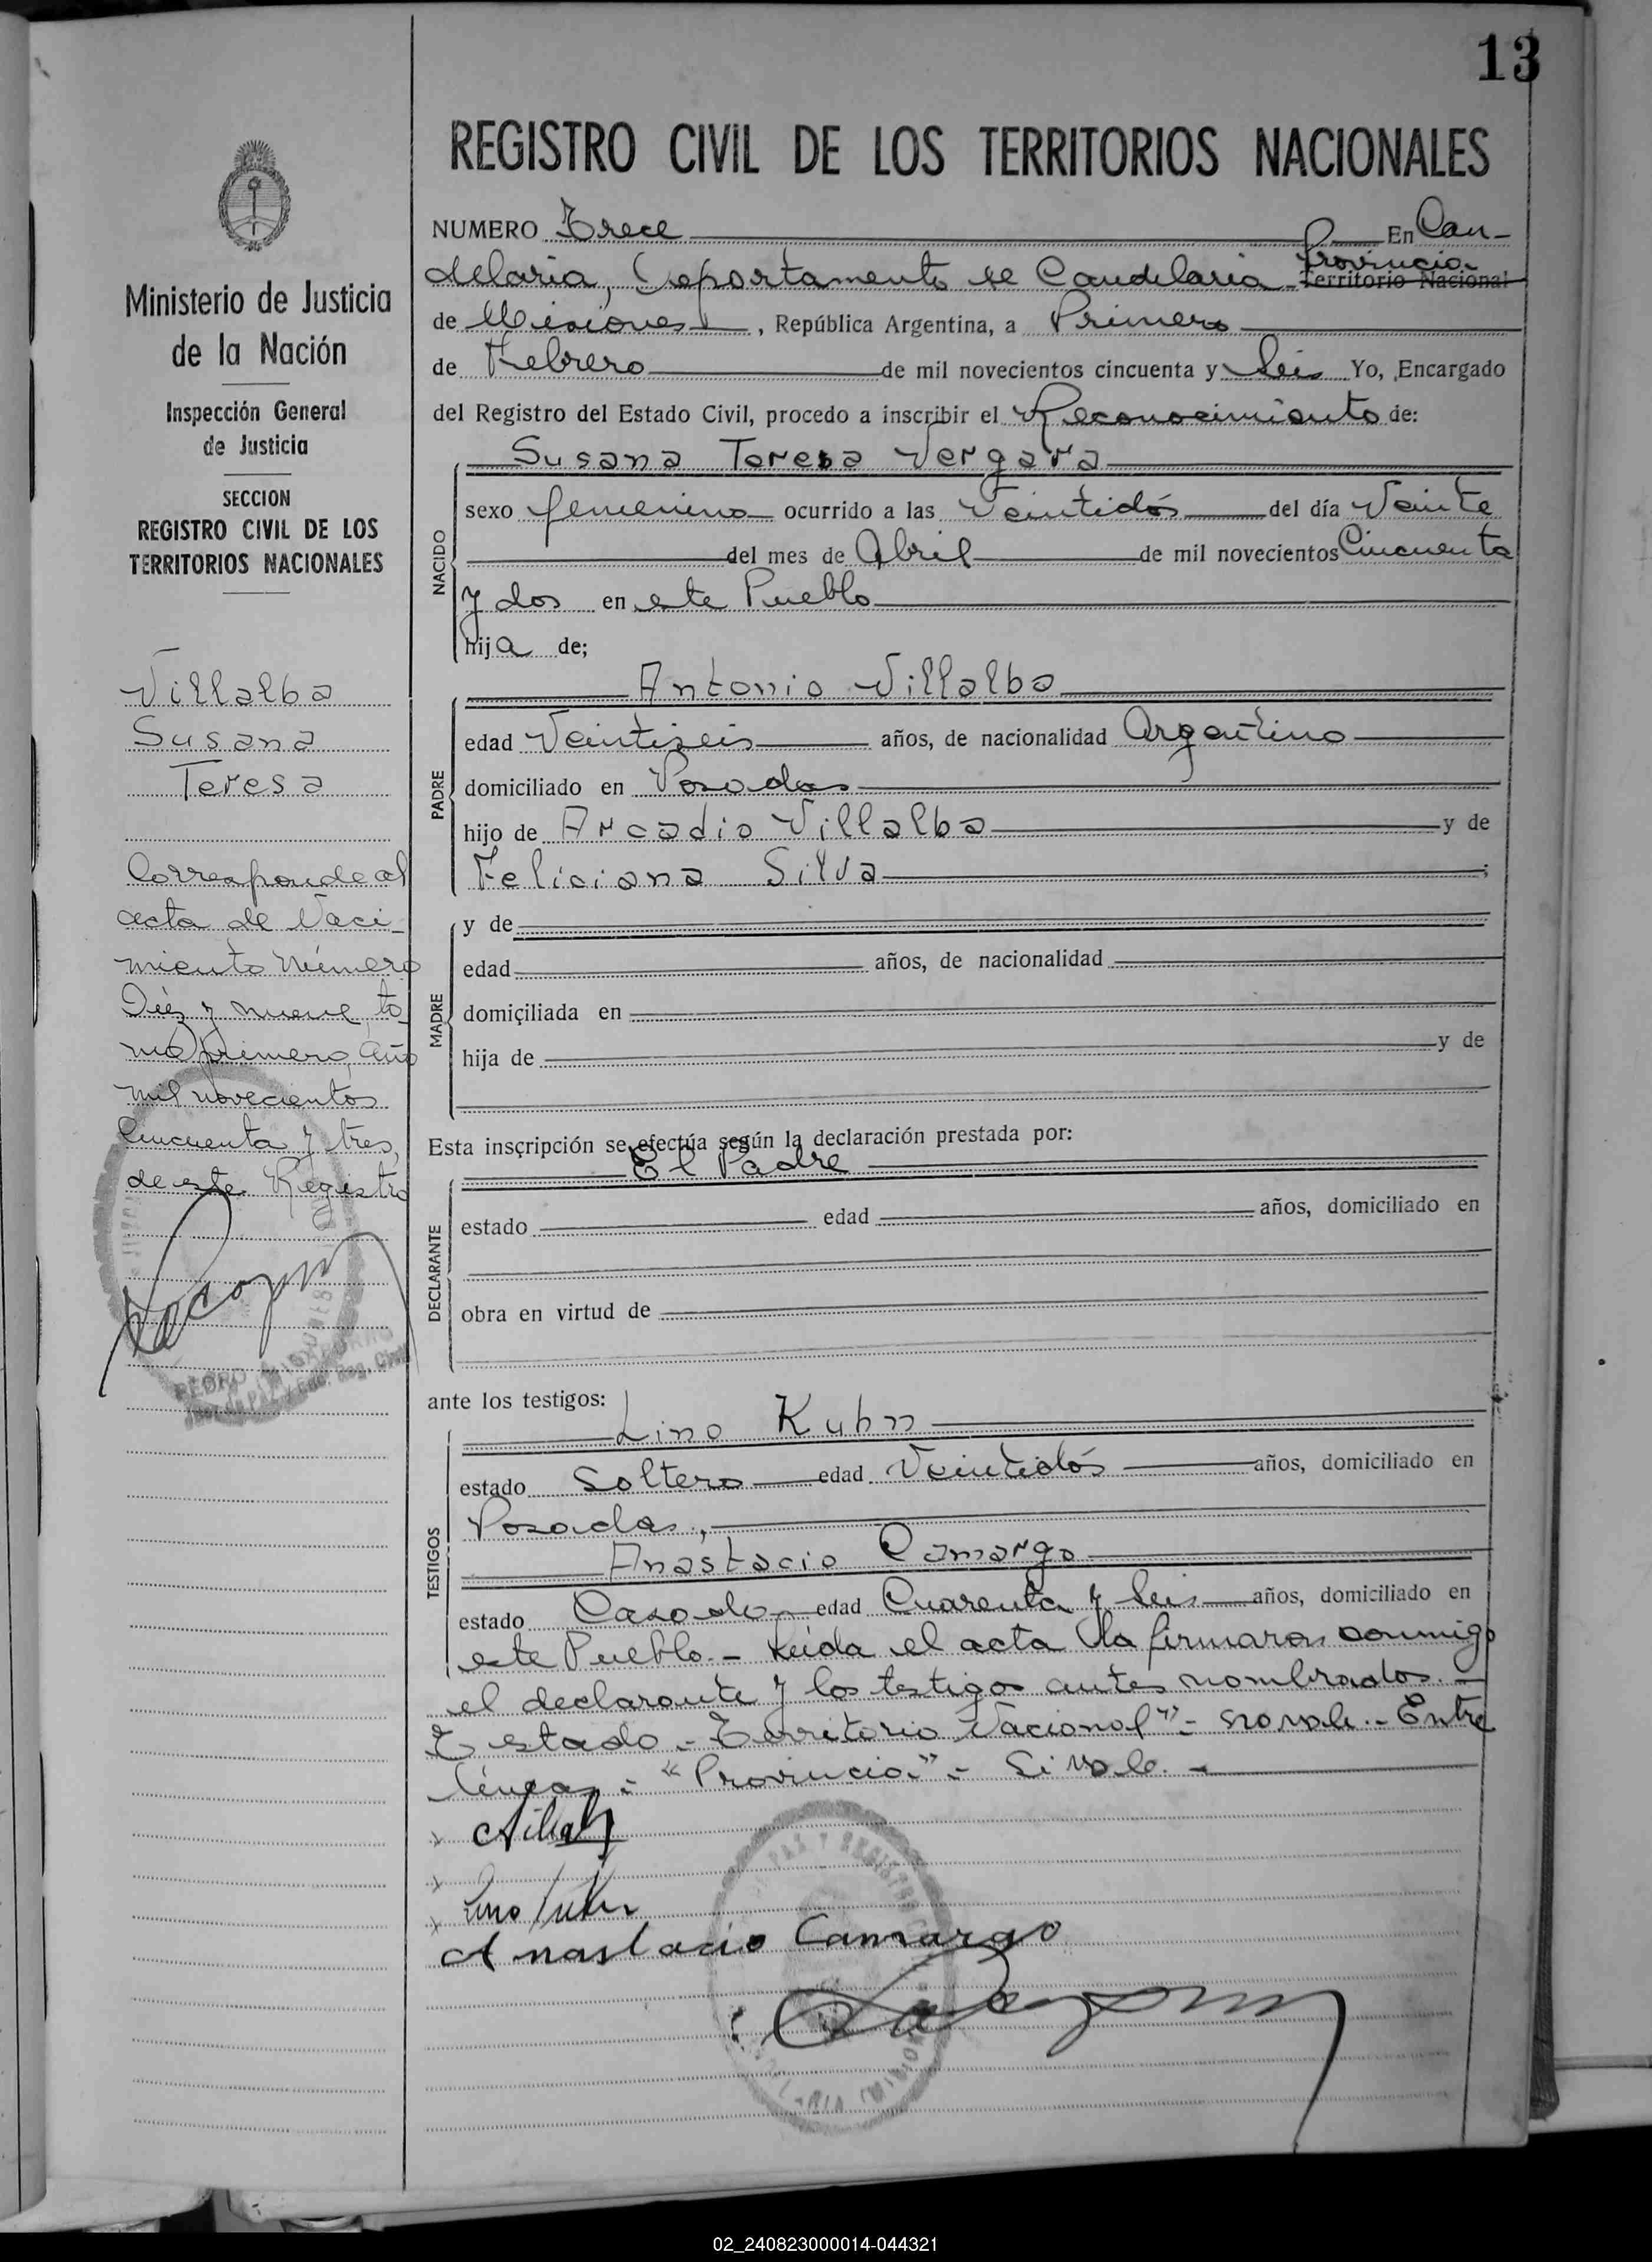 13
REGISTRO CIVIL DE LOS TERRITORIOS NACIONALES
NUMERO Trece En Can-
delaria, Departamento de Candelaria Provincia Territorio Nacional
de Misiones, República Argentina, a Primero
de Febrero de mil novecientos cincuenta y Seis Yo, Encargado
del Registro del Estado Civil, procedo a inscribir el Reconocimiento de:
Susana Teresa Vergara
NACIDO
sexo femenino ocurrido a las Veintidós del día Veinte
del mes de Abril de mil novecientos Cincuenta
y dos en este Pueblo
hija de;
PADRE
Antonio Villalba
edad Veintiseis años, de nacionalidad Argentino
domiciliado en Posadas
hijo de Arcadio Villalba y de
Feliciana Silva ;
MADRE
y de
edad años, de nacionalidad
domiciliada en
hija de y de
Esta inscripción se efectúa según la declaración prestada por:
El Padre
DECLARANTE
estado edad años, domiciliado en
obra en virtud de
ante los testigos:
TESTIGOS
Lino Kuhn
estado Soltero edad Veintidós años, domiciliado en
Posadas,
Anastacio Camargo
estado Casado edad Cuarenta y Seis años, domiciliado en
este Pueblo.- Leida el acta la firmaron conmigo
el declarante y los testigos antes nombrados.-
Testado - Territorio Nacional"- no vale.- Entre
líneas:- "Provincia"- Si vale.-
Anastacio Camargo
Ministerio de Justicia
de la Nación
Inspección General
de Justicia
SECCION
REGISTRO CIVIL DE LOS
TERRITORIOS NACIONALES
Villalba
Susana
Teresa
Corresponde al
acta de Naci-
miento Número
Diez y nueve, to-
mo primero, año
mil novecientos
Cincuenta y tres,
de este Registro
PEDRO
02_240823000014-044321